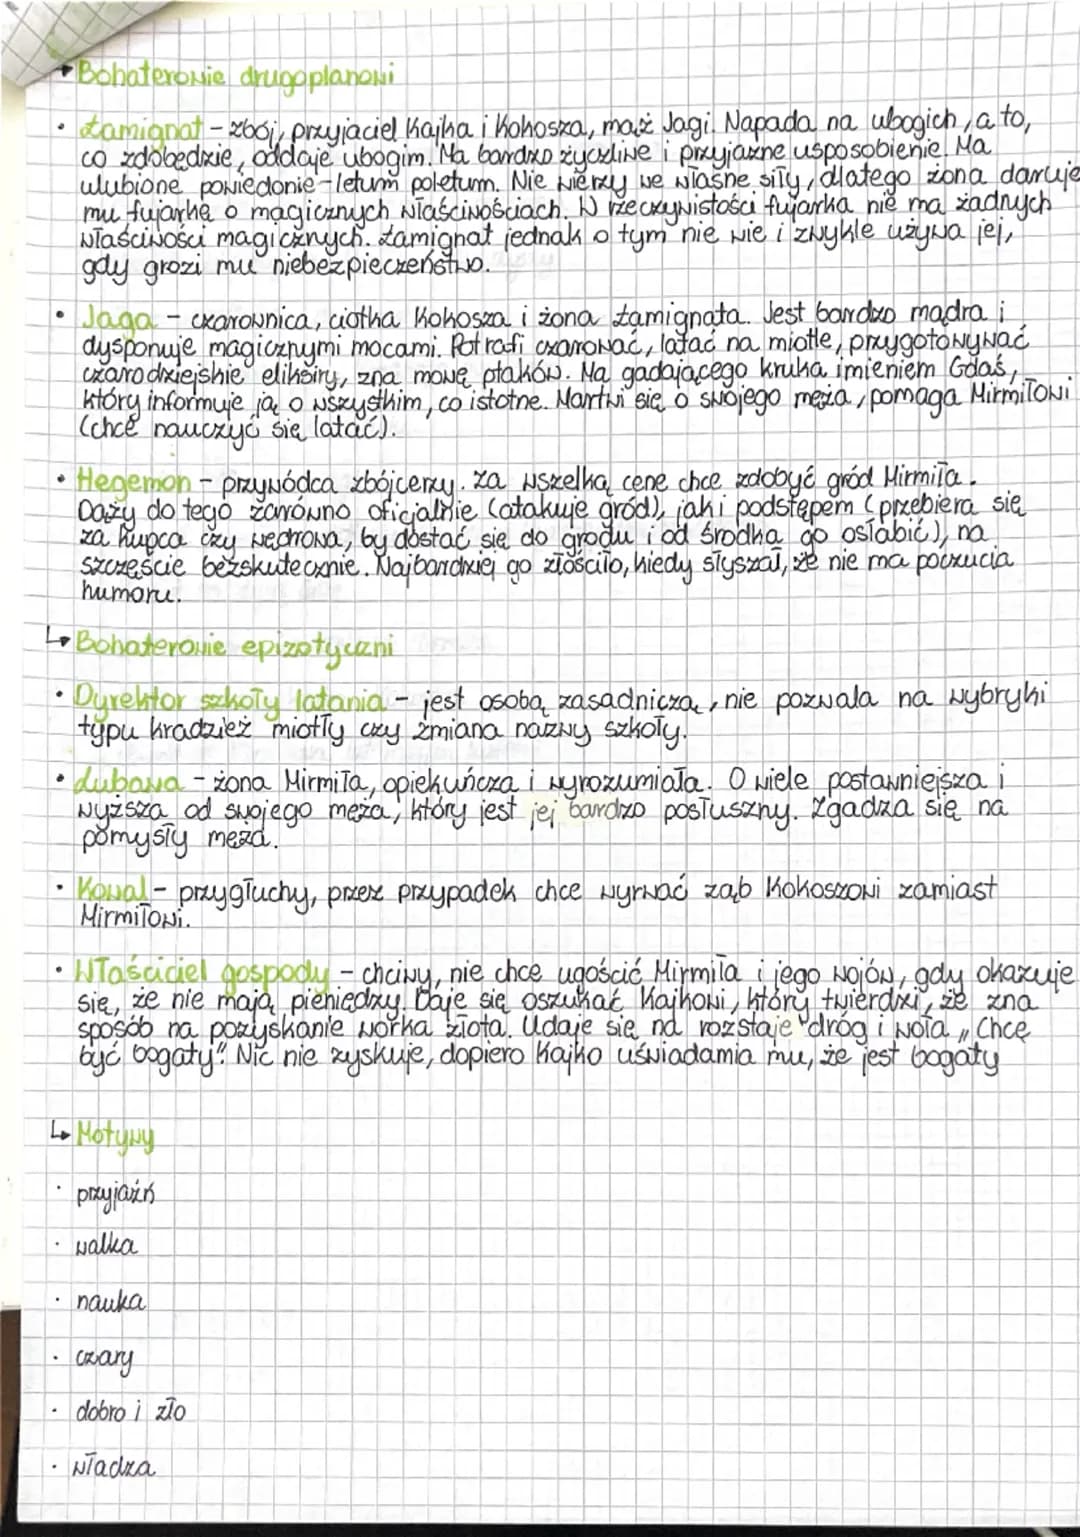 Bohaterowie drugoplanowi
• Łamignat - zbój, przyjaciel Kajka i Kokosza, mąż Jagi. Napada na ubogich, a to,
co zdobędzie, oddaje ubogim. Ma bardzo życzliwe i przyjazne usposobienie. Ma
ulubione powiedonie - letum poletum. Nie wierzy we własne siły, dlatego żona daruje
mu fujarkę o magicznych właściwościach. W rzeczywistości fujarka nie ma żadnych
właściwości magicznych. Łamignat jednak o tym nie wie i zwykle używa jej,
gdy grozi mu niebezpieczeństwo.
• Jaga - czarownica, ciotka Kokosza i żona Łamignata. Jest bardzo mądra i
dysponuje magicznymi mocami. Potrafi czarować, latać na miotle, przygotowywać
czarodziejskie eliksiry, zna mowę ptaków. Ma gadającego kruka imieniem Gdaś,
który informuje ją o wszystkim, co istotne. Martwi się o swojego męża, pomaga Mirmiłowi
(chce nauczyć się latać).
• Hegemon - przywódca zbójcerzy. Za wszelką cenę chce zdobyć gród Mirmiła.
Dąży do tego zarówno oficjalnie (atakuje gród), jak i podstępem (przebiera się
za kupca czy wędrowa, by dostać się do grodu i od środka go osłabić), na
szczęście bezskutecznie. Najbardziej go złościło, kiedy słyszał, że nie ma poczucia
humoru.
↳ Bohaterowie epizotyczni
• Dyrektor szkoły latania - jest osobą zasadniczą, nie pozwala na wybryki
typu kradzież miotły czy zmiana nazwy szkoły.
• Lubawa - żona Mirmiła, opiekuńcza i wyrozumiała. O wiele postawniejsza i
wyższa od swojego męża, który jest jej bardzo posłuszny. Zgadza się na
pomysły męża.
• Kowal - przygłuchy, przez przypadek chce wyrwać ząb Kokoszowi zamiast
Mirmiłowi.
• Właściciel gospody - chciwy, nie chce ugościć Mirmiła i jego wojów, gdy okazuje
się, że nie mają pieniędzy. Daje się oszukać Kajkowi, który twierdzi, że zna
sposób na pozyskanie worka złota. Udaje się na rozstaje dróg i woła „Chcę
być bogaty". Nic nie zyskuje, dopiero Kajko uświadamia mu, że jest bogaty
↳ Motywy
• przyjaźń
• walka
• nauka
• czary
• dobro i zło
• władza